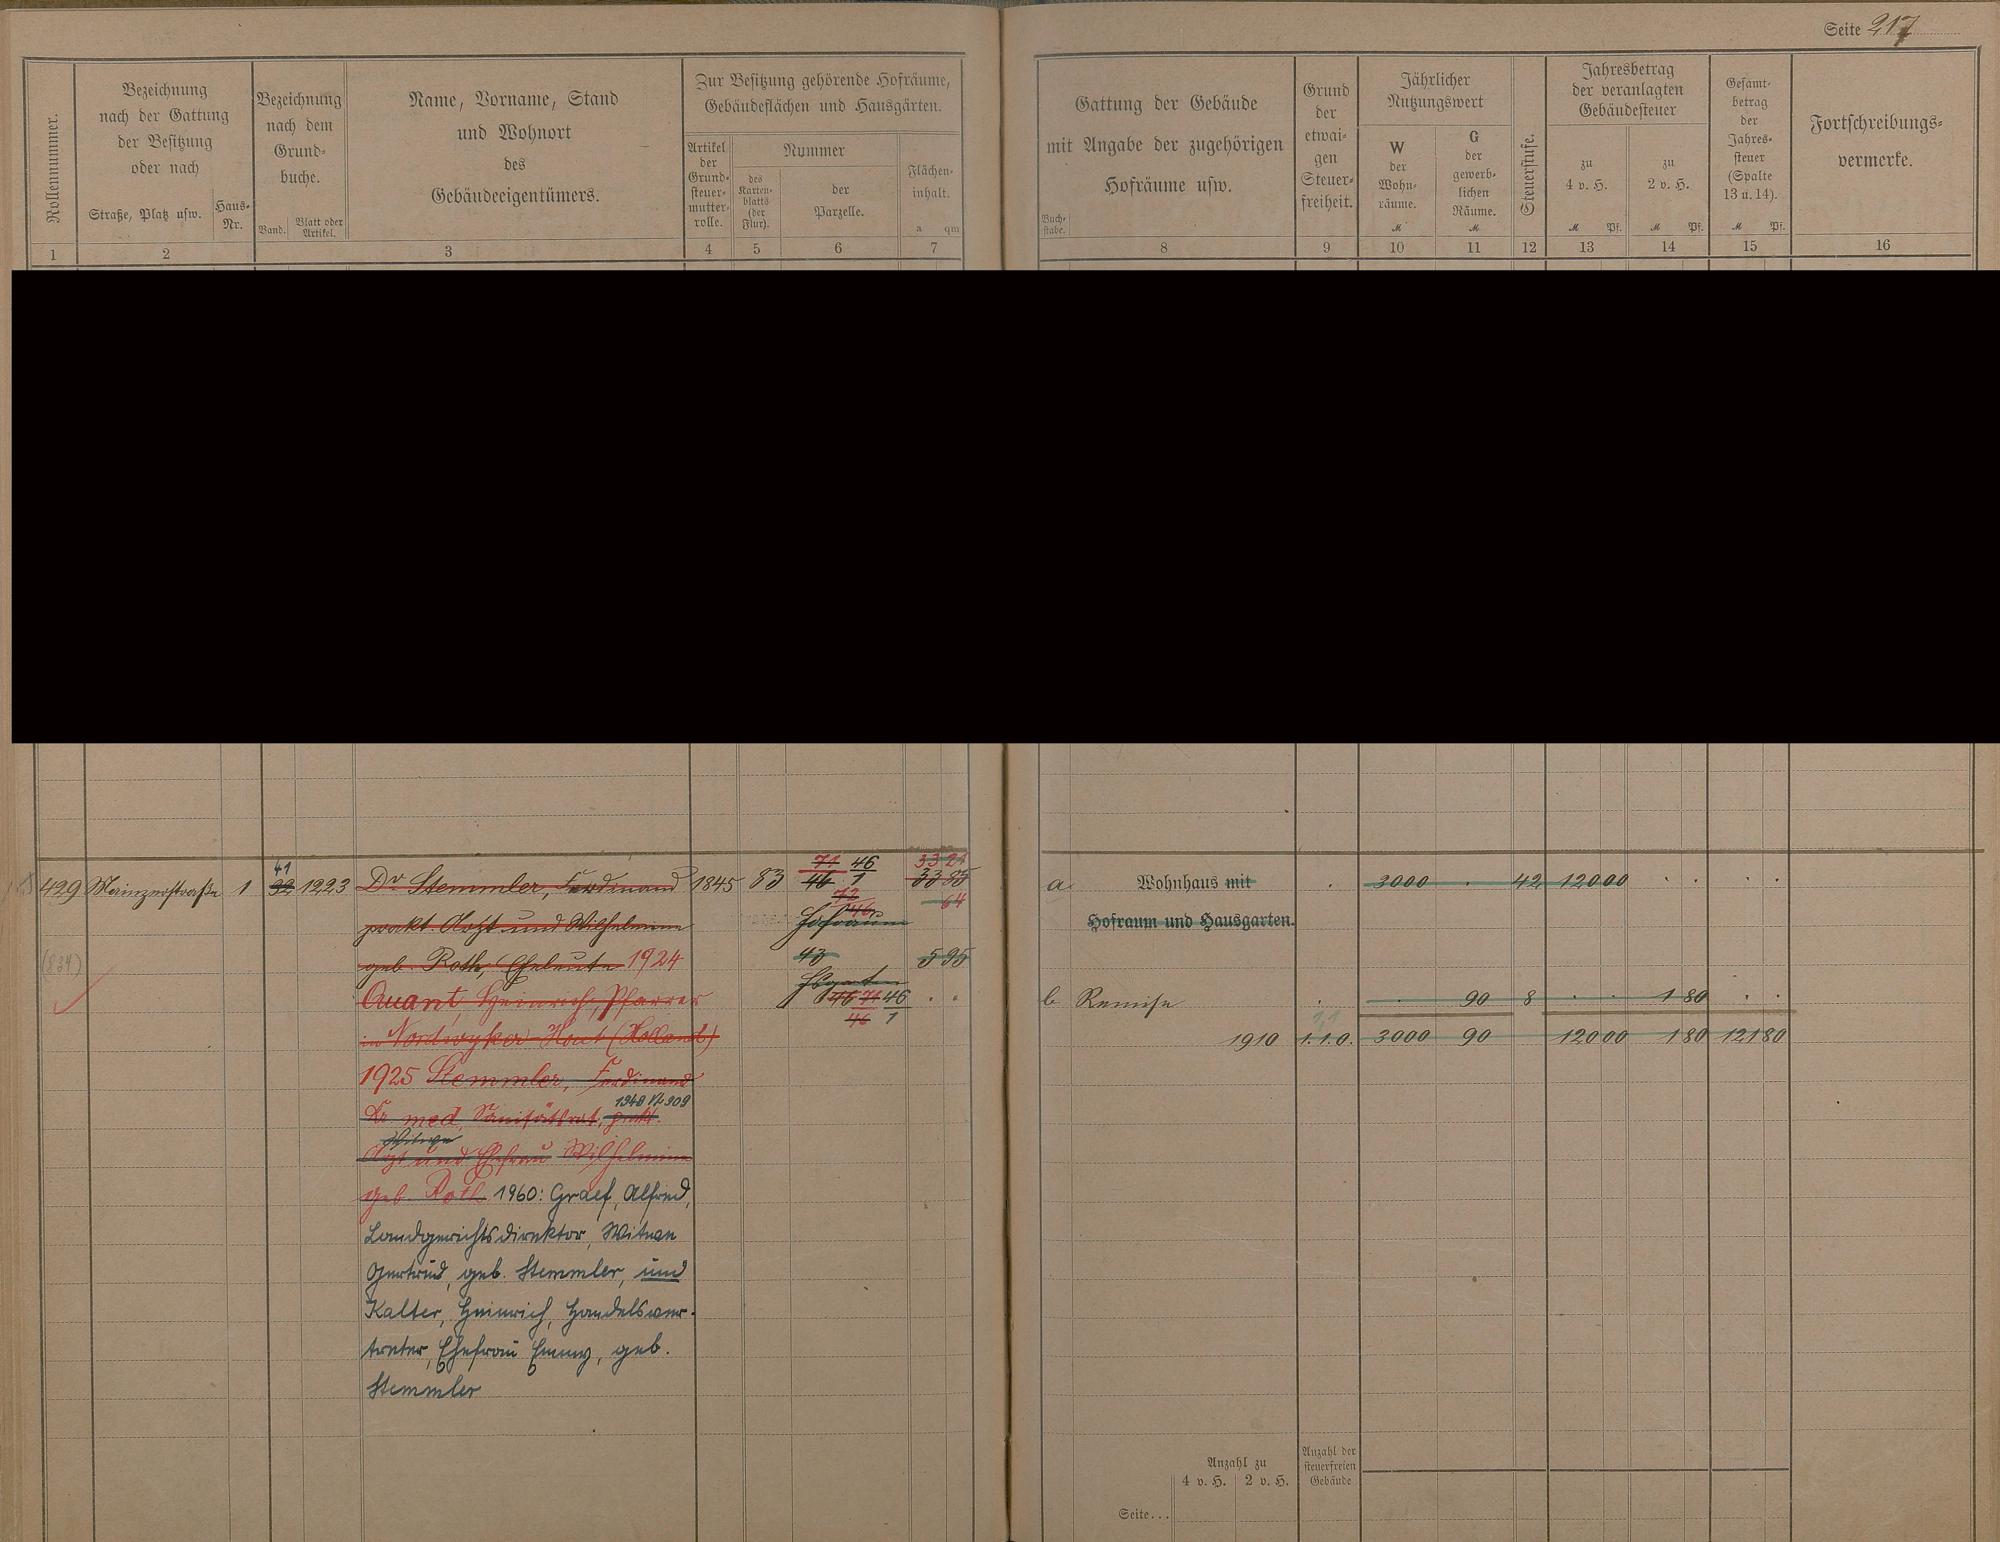 Seite 217
Rollennummer.
Bezeichnung
nach der Gattung
der Besitzung
oder nach
Straße, Platz usw.
Haus-
Nr.
Bezeichnung
nach dem
Grund-
buche.
Band.
Blatt oder
Artikel.
Name, Vorname, Stand
und Wohnort
des
Gebäudeeigentümers.
Zur Besitzung gehörende Hofräume,
Gebäudeflächen und Hausgärten.
Artikel
der
Grund-
steuer-
mutter-
rolle.
Nummer
des
Karten-
blatts
(der
Flur).
der
Parzelle.
Flächen-
inhalt.
a qm
Buch-
stabe.
Gattung der Gebäude
mit Angabe der zugehörigen
Hofräume usw.
Grund
der
etwai-
gen
Steuer-
freiheit.
Jährlicher
Nutzungswert
W
der
Wohn-
räume.
M
G
der
gewerb-
lichen
Räume.
M
Steuerstufe.
Jahresbetrag
der veranlagten
Gebäudesteuer
zu
4 v. H.
M Pf.
zu
2 v. H.
M Pf.
Gesamt-
betrag
der
Jahres-
steuer
(Spalte
13 u. 14).
M Pf.
Fortschreibungs-
vermerke.
1 2 3 4 5 6 7 8 9 10 11 12 13 14 15 16
429 Mainzerstraße 1
41
32 1223
Dr Stemmler, Ferdinand
prakt. Arzt und Wilhelmine
geb. Roth, Eheleute 1924
Quant, Heinrich, Pfarrer
in Nordwyker Hout (Holland)
1925 Stemmler, Ferdinand
1940 VL 309
Dr med, Sanitätsrat, prakt.
Witwe
Arzt und Ehefrau Wilhelmine
geb. Roth 1960: Graef, Alfred,
Landgerichtsdirektor, Witwe
Gertrud, geb. Stemmler, und
Kalter, Heinrich, Handelsver-
treter, Ehefrau Emmy, geb.
Stemmler
1845 83
71 46
46 1
72
46
Hofraum
43
Hsgarten
46 71 46
46 1
33 21
33 85
64
5 95
(834)
a Wohnhaus mit
Hofraum und Hausgarten.
3000 42 120 00
b Remise
90 8 1 80
1910 1.1.0. 3000 90 120 00 1 80 121 80
Anzahl zu
4 v. H. 2 v. H.
Anzahl der
steuerfreien
Gebäude
Seite...